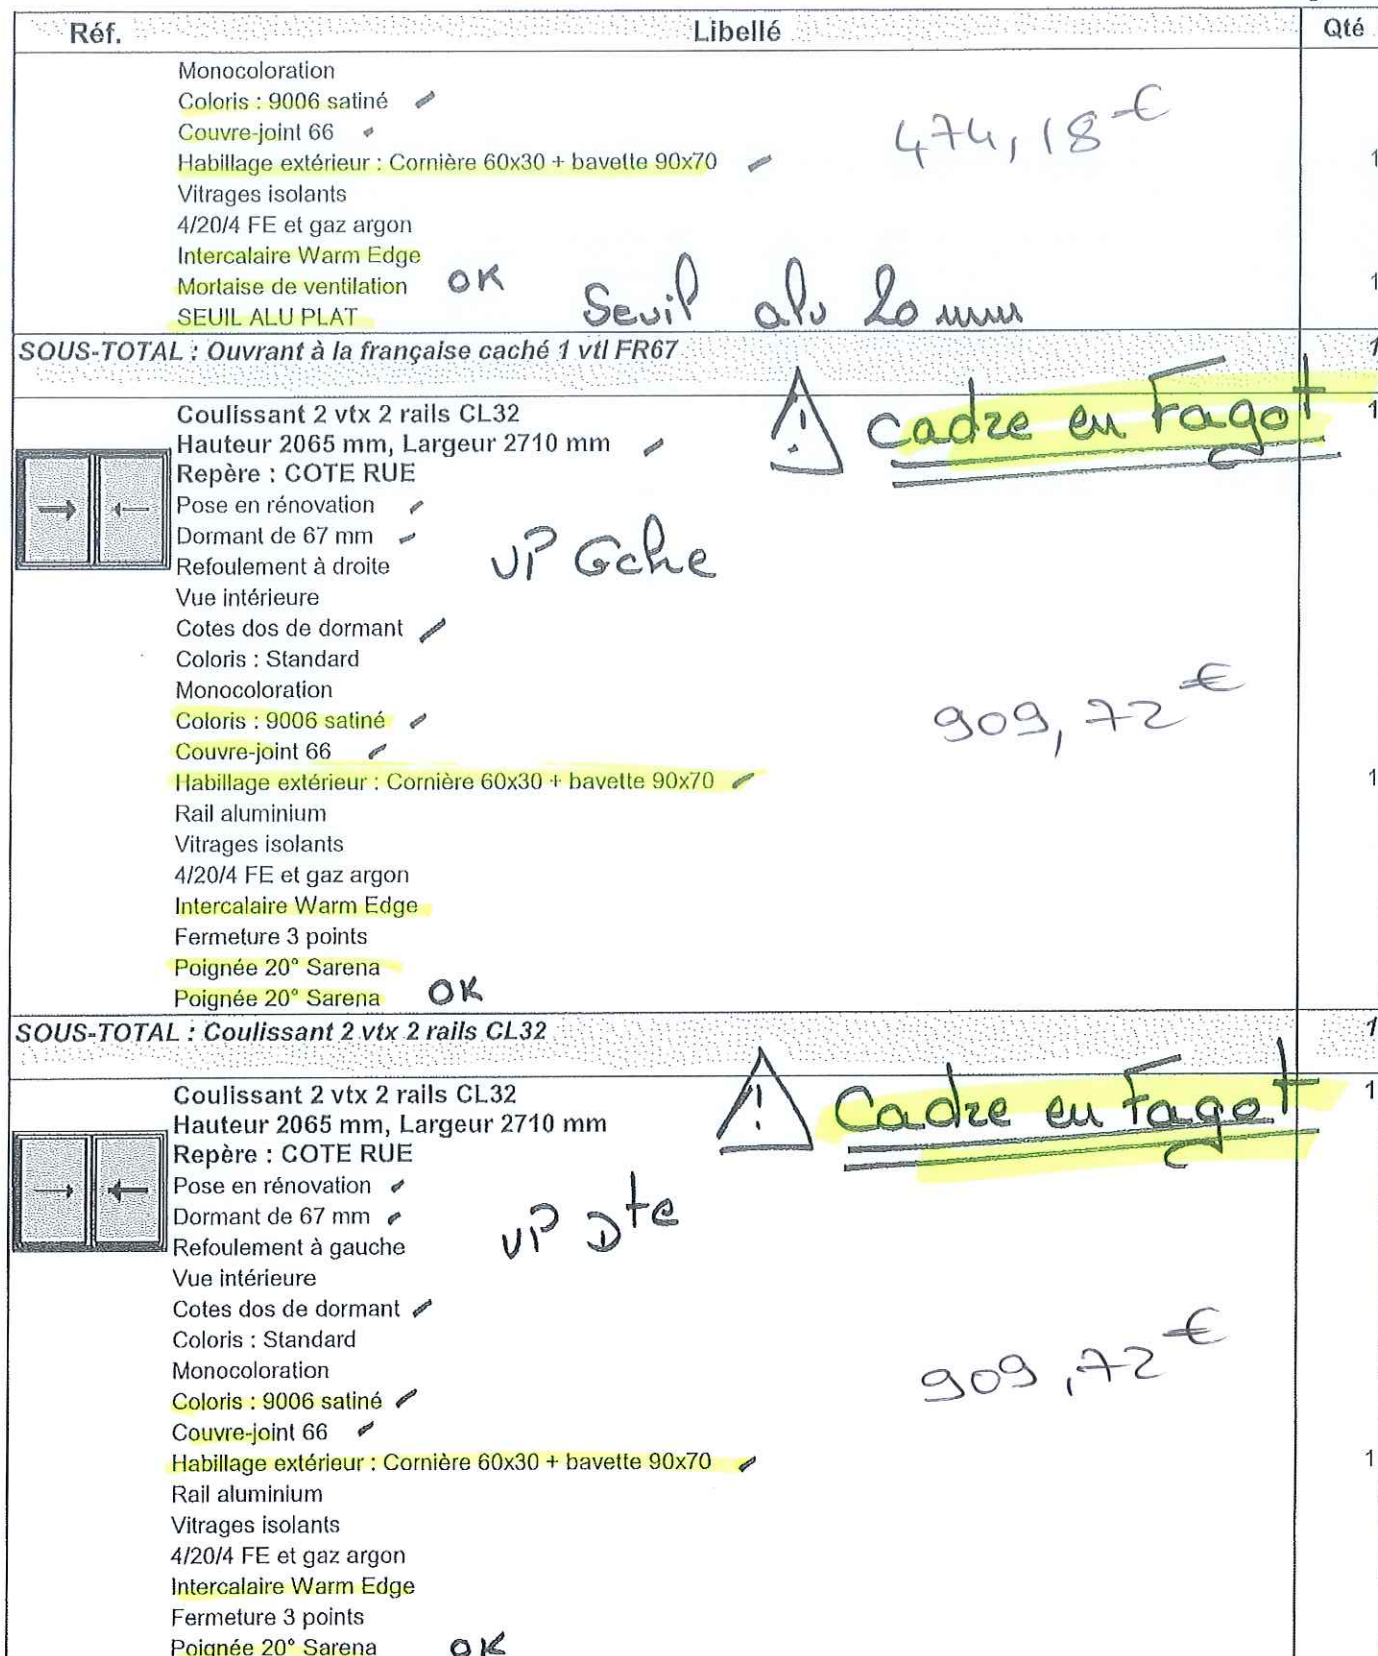 Réf. Libellé Qté
Monocoloration
Coloris : 9006 satiné
474,18 €
Couvre-joint 66
Habillage extérieur : Cornière 60x30 + bavette 90x70 1
Vitrages isolants
4/20/4 FE et gaz argon
Intercalaire Warm Edge
Mortaise de ventilation OK 1
SEUIL ALU PLAT Seuil alu 20 mm
SOUS-TOTAL : Ouvrant à la française caché 1 vtl FR67 1
Coulissant 2 vtx 2 rails CL32 1
⚠ Cadre en Fagot
Hauteur 2065 mm, Largeur 2710 mm
Repère : COTE RUE
Pose en rénovation
Dormant de 67 mm
VP Gche
Refoulement à droite
Vue intérieure
Cotes dos de dormant
Coloris : Standard
Monocoloration
Coloris : 9006 satiné
909,72 €
Couvre-joint 66
Habillage extérieur : Cornière 60x30 + bavette 90x70 1
Rail aluminium
Vitrages isolants
4/20/4 FE et gaz argon
Intercalaire Warm Edge
Fermeture 3 points
Poignée 20° Sarena
Poignée 20° Sarena OK
SOUS-TOTAL : Coulissant 2 vtx 2 rails CL32 1
Coulissant 2 vtx 2 rails CL32 1
⚠ Cadre en Fagot
Hauteur 2065 mm, Largeur 2710 mm
Repère : COTE RUE
Pose en rénovation
Dormant de 67 mm
VP Dte
Refoulement à gauche
Vue intérieure
Cotes dos de dormant
Coloris : Standard
Monocoloration
909,72 €
Coloris : 9006 satiné
Couvre-joint 66
Habillage extérieur : Cornière 60x30 + bavette 90x70 1
Rail aluminium
Vitrages isolants
4/20/4 FE et gaz argon
Intercalaire Warm Edge
Fermeture 3 points
Poignée 20° Sarena OK